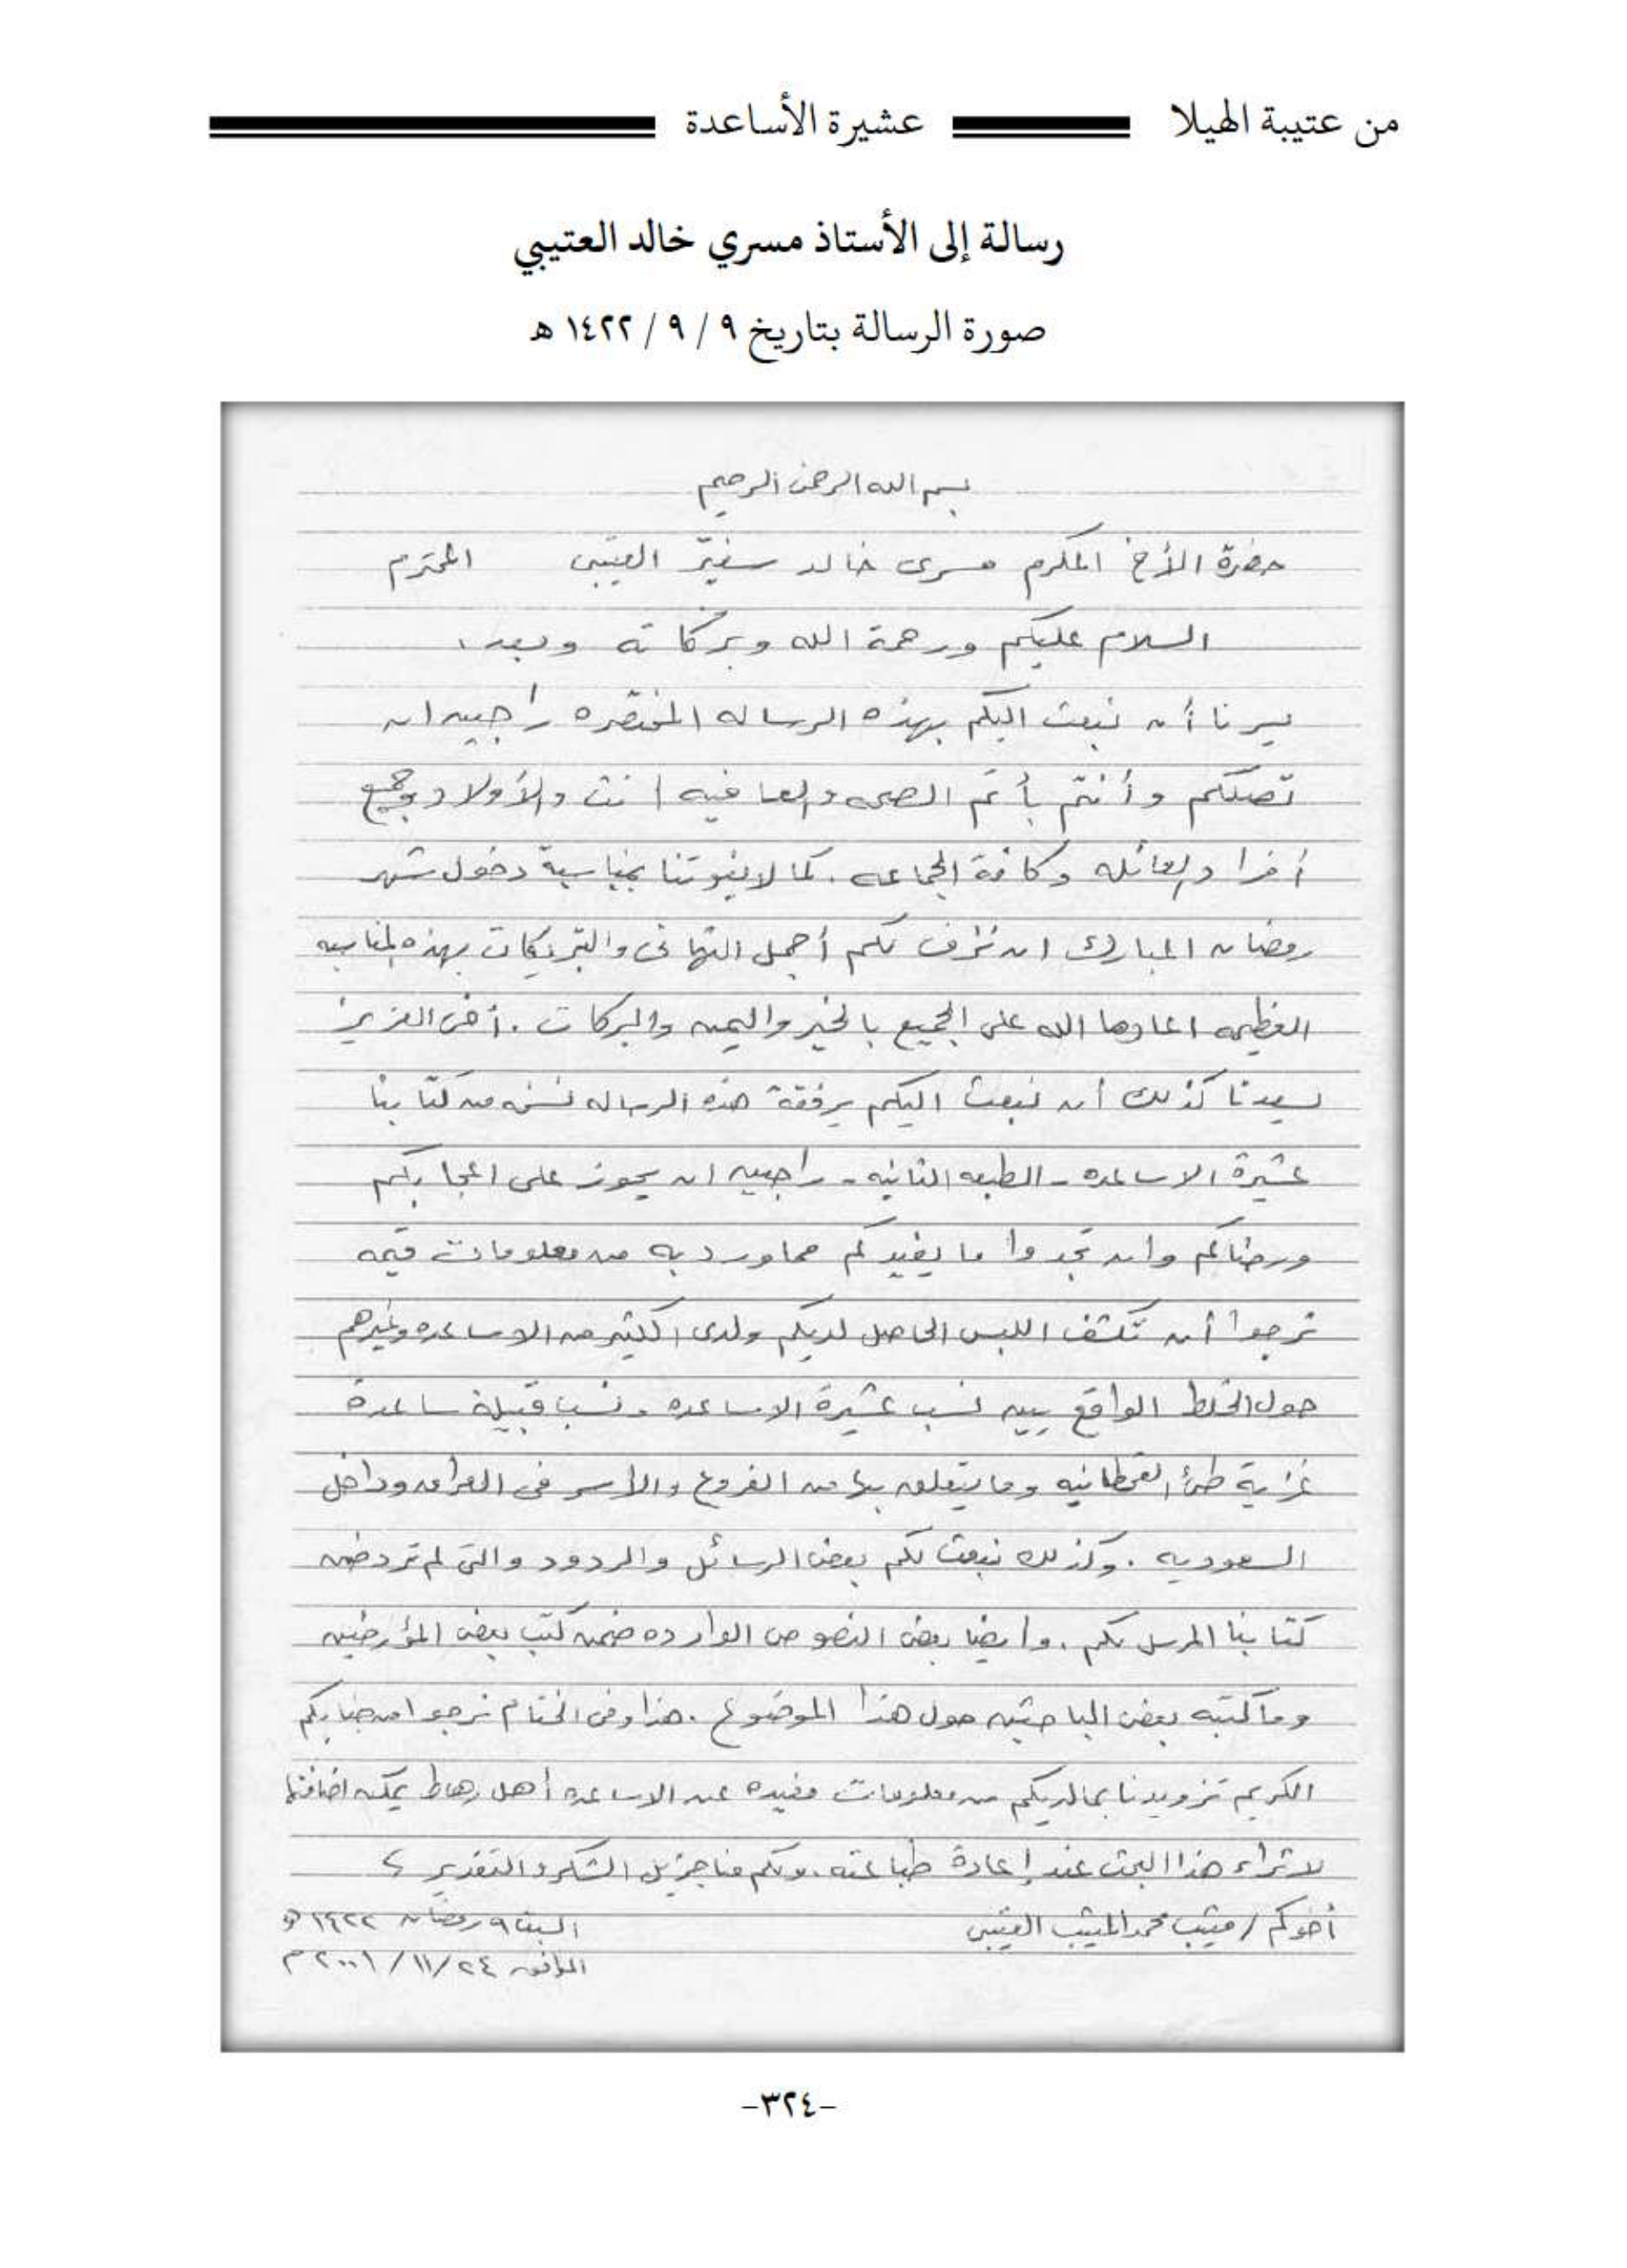 من عتيبة الهيلا عشيرة الأساعدة
رسالة إلى الأستاذ مسري خالد العتيبي
صورة الرسالة بتاريخ ٩ / ٩ / ١٤٢٢ هـ
بسم الله الرحمن الرحيم
حضرة الأخ المكرم مسرى خالد سفيّر العتيبى المحترم
السلام عليكم ورحمة الله وبركاته وبعد،
يسرنا أن نبعث اليكم بهذه الرساله المختصره راجين ان
تصلكم وأنتم بأتم الصحه والعافيه انت والأولاد وجميع
أفراد العائله وكافة الجماعه. كما لايفوتنا بمناسبة دخول شهر
رمضان المبارك ان نزف لكم أجمل التهانى والتبريكات بهذه المناسبه
العظيمه اعادها الله على الجميع بالخير واليمن والبركات. أخى العزيز
يسعدنا كذلك أن نبعث اليكم برفقة هذه الرساله نسخه من كتابنا
عشيرة الاساعده - الطبعه الثانيه - راجين ان يحوز على اعجابكم
ورضاكم وان تجدوا ما يفيدكم مما ورد به من معلومات قيمه
نرجوا أن تكشف اللبس الحاصل لديكم ولدى الكثير من الاساعده وغيرهم
حول الخلط الواقع بين نسب عشيرة الاساعده ونسب قبيلة ساعدة
غزية طئ القحطانيه وما يتعلق بها من الفروع والأسر فى العراق وداخل
السعوديه. وكذلك نبعث لكم بعض الرسائل والردود والتى لم ترد ضمن
كتابنا المرسل لكم. وايضا بعض النصوص الوارده ضمن كتب بعض المؤرخين
وماكتبه بعض الباحثين حول هذا الموضوع. هذا وفى الختام نرجوا من جنابكم
الكريم تزويدنا بمالديكم من معلومات مفيده عن الاساعده أهل رهاط يمكن اضافتها
لاثراء هذا البحث عند إعادة طباعته. ولكم منا جزيل الشكر والتقدير
أخوكم / متيب محمد المثيب العتيبى السبت ٩ رمضان ١٤٢٢هـ
الموافق ٢٤/١١/٢٠٠١م
-٣٢٤-